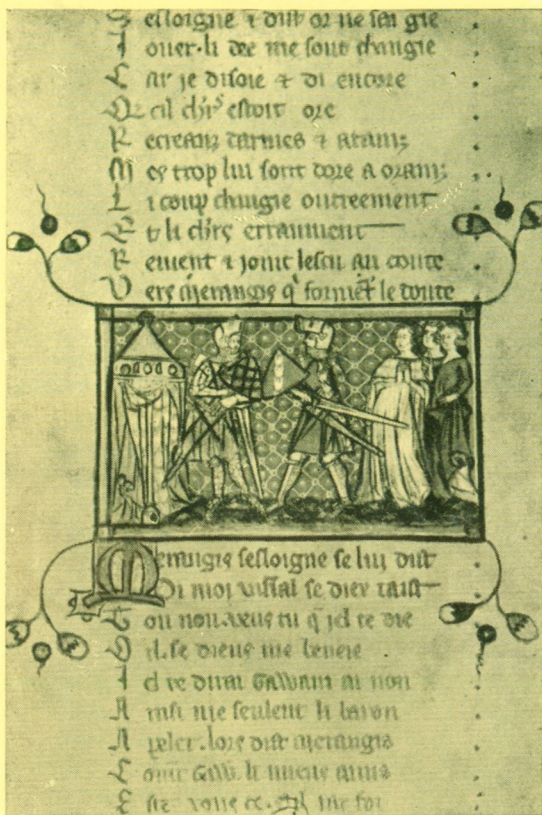 S esloigne ⁊ dist or ne sai gie
I ouer. li dee me sont changie
C ar je disoie ⁊ di encore
Q cil chrs estoit ore
R ecreanz darmes ⁊ atainz
M es trop lui sont dore a orainz
L i coup changie outreement
E t li chrs erraument
R euient ⁊ joint lescu au coute
U ers merangis q forment le doute
M erangis sesloigne se lui dist
D i moi vassal se diex taist
T on non. veus tu q jel te die
O il. se diex me beneie
I el te dirai Gawain ai non
A insi me seulent li baron
A peler. lors dist merangis
C oment Gaw. li miens amis
E ste vous ce. oil me foi